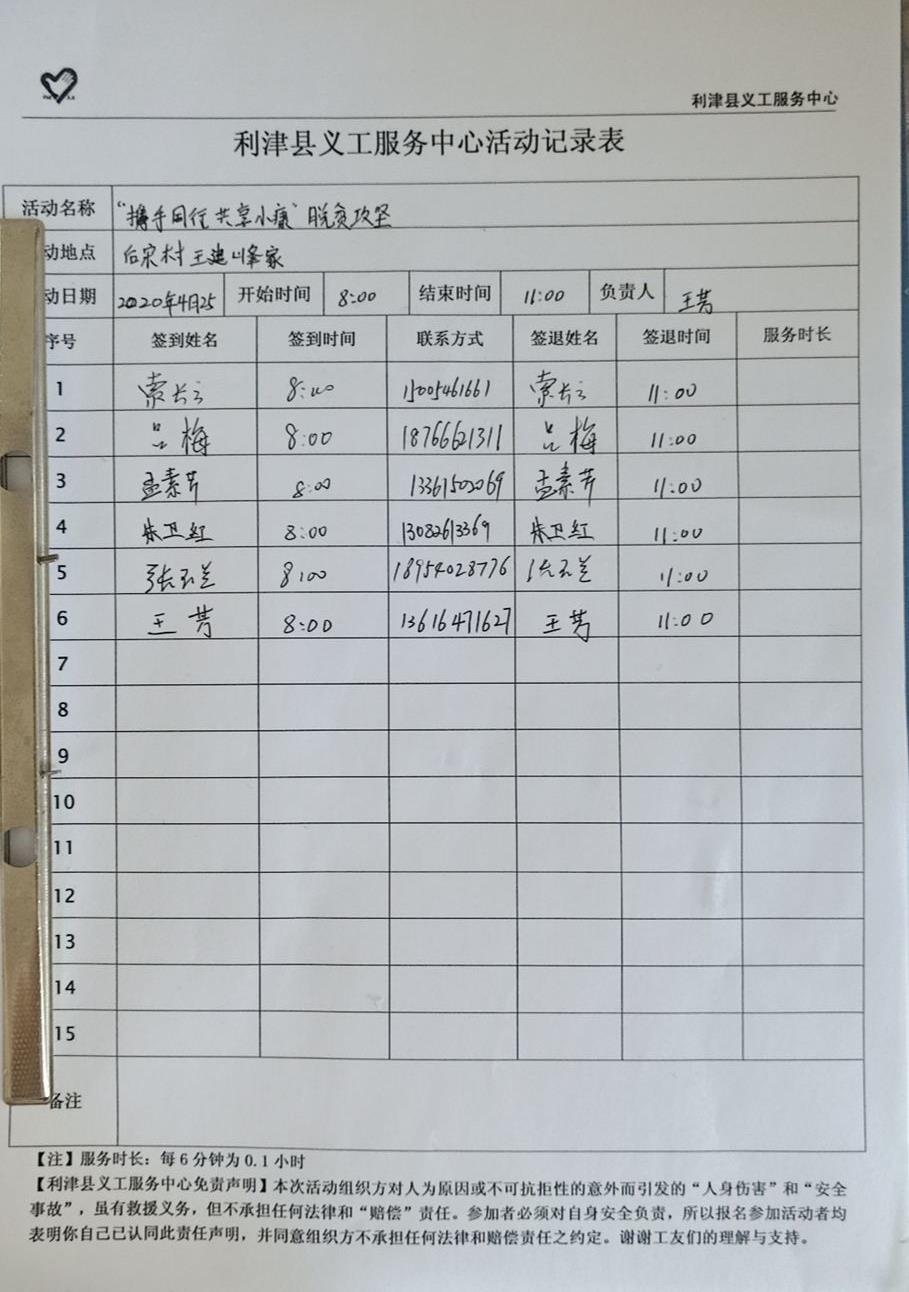 利津县义工服务中心
利津县义工服务中心活动记录表
活动名称 “携手同行 共享小康”脱贫攻坚
动地点 后宋村王建峰家
动日期 2020年4月25 开始时间 8:00 结束时间 11:00 负责人 王芳
序号 签到姓名 签到时间 联系方式 签退姓名 签退时间 服务时长
1 8:00 15005461661 11:00
2 吕梅 8:00 18766621311 吕梅 11:00
3 孟素芹 8:00 13361502069 孟素芹 11:00
4 朱卫红 8:00 13082613369 朱卫红 11:00
5 张玉兰 8:00 18954028776 张玉兰 11:00
6 王芳 8:00 13616471627 王芳 11:00
7
8
9
10
11
12
13
14
15
备注
【注】服务时长：每6分钟为0.1小时
【利津县义工服务中心免责声明】本次活动组织方对人为原因或不可抗拒性的意外而引发的“人身伤害”和“安全
事故”，虽有救援义务，但不承担任何法律和“赔偿”责任。参加者必须对自身安全负责，所以报名参加活动者均
表明你自己已认同此责任声明，并同意组织方不承担任何法律和赔偿责任之约定。谢谢工友们的理解与支持。